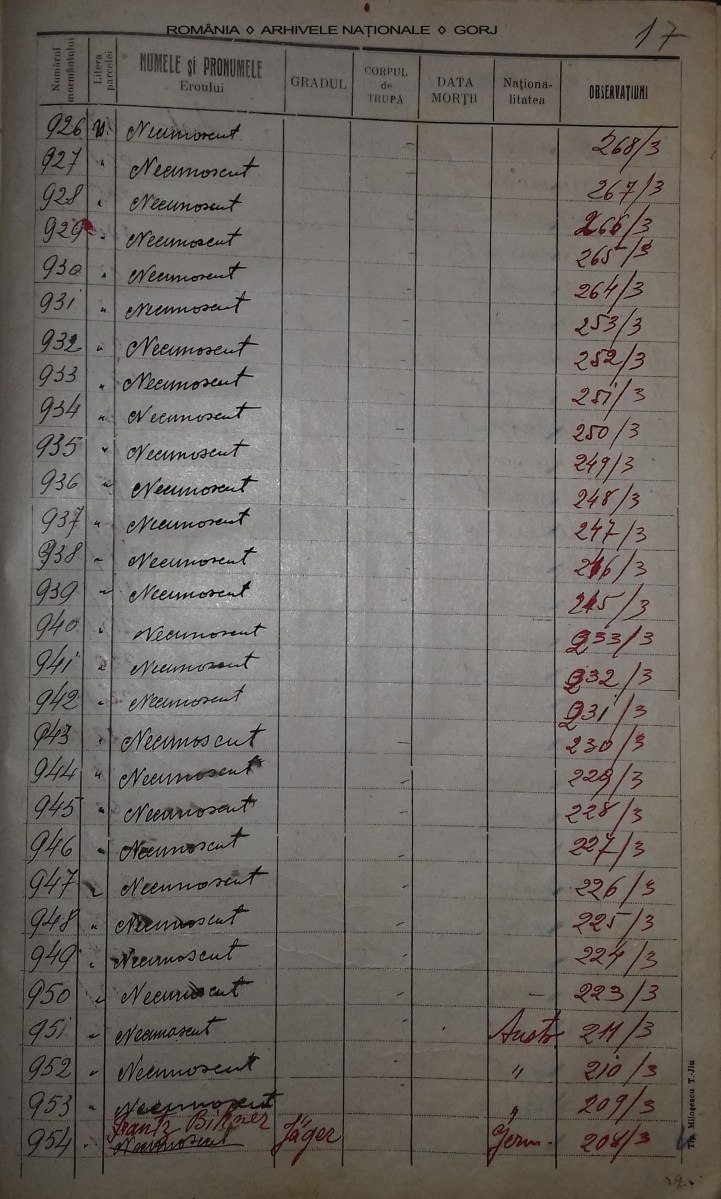 ROMÂNIA ◊ ARHIVELE NAȚIONALE ◊ GORJ
17
Numărul mormântului Litera parcelei NUMELE și PRONUMELE Eroului GRADUL CORPUL de TRUPĂ DATA MORȚII Naționa-litatea OBSERVAȚIUNI
926 Necunoscut - 268/3
927 " Necunoscut - 267/3
928 " Necunoscut - 266/3
929 " Necunoscut - 265/3
930 " Necunoscut - 264/3
931 " Necunoscut - 253/3
932 " Necunoscut - 252/3
933 " Necunoscut - 251/3
934 " Necunoscut - 250/3
935 " Necunoscut - 249/3
936 " Necunoscut - 248/3
937 " Necunoscut - 247/3
938 " Necunoscut - 246/3
939 " Necunoscut - 245/3
940 " Necunoscut 233/3
941 " Necunoscut 232/3
942 " Necunoscut 231/3
943 " Necunoscut - 230/3
944 " Necunoscut - 229/3
945 " Necunoscut - 228/3
946 " Necunoscut - 227/3
947 " Necunoscut - 226/3
948 " Necunoscut - 225/3
949 " Necunoscut - 224/3
950 " Necunoscut - - 223/3
951 " Necunoscut - Austr 211/3
952 " Necunoscut " 210/3
953 " Necunoscut " 209/3
Frantz
954 " Necunoscut Jäger Germ. 208/3
Tip. Milogescu T.-Jiu